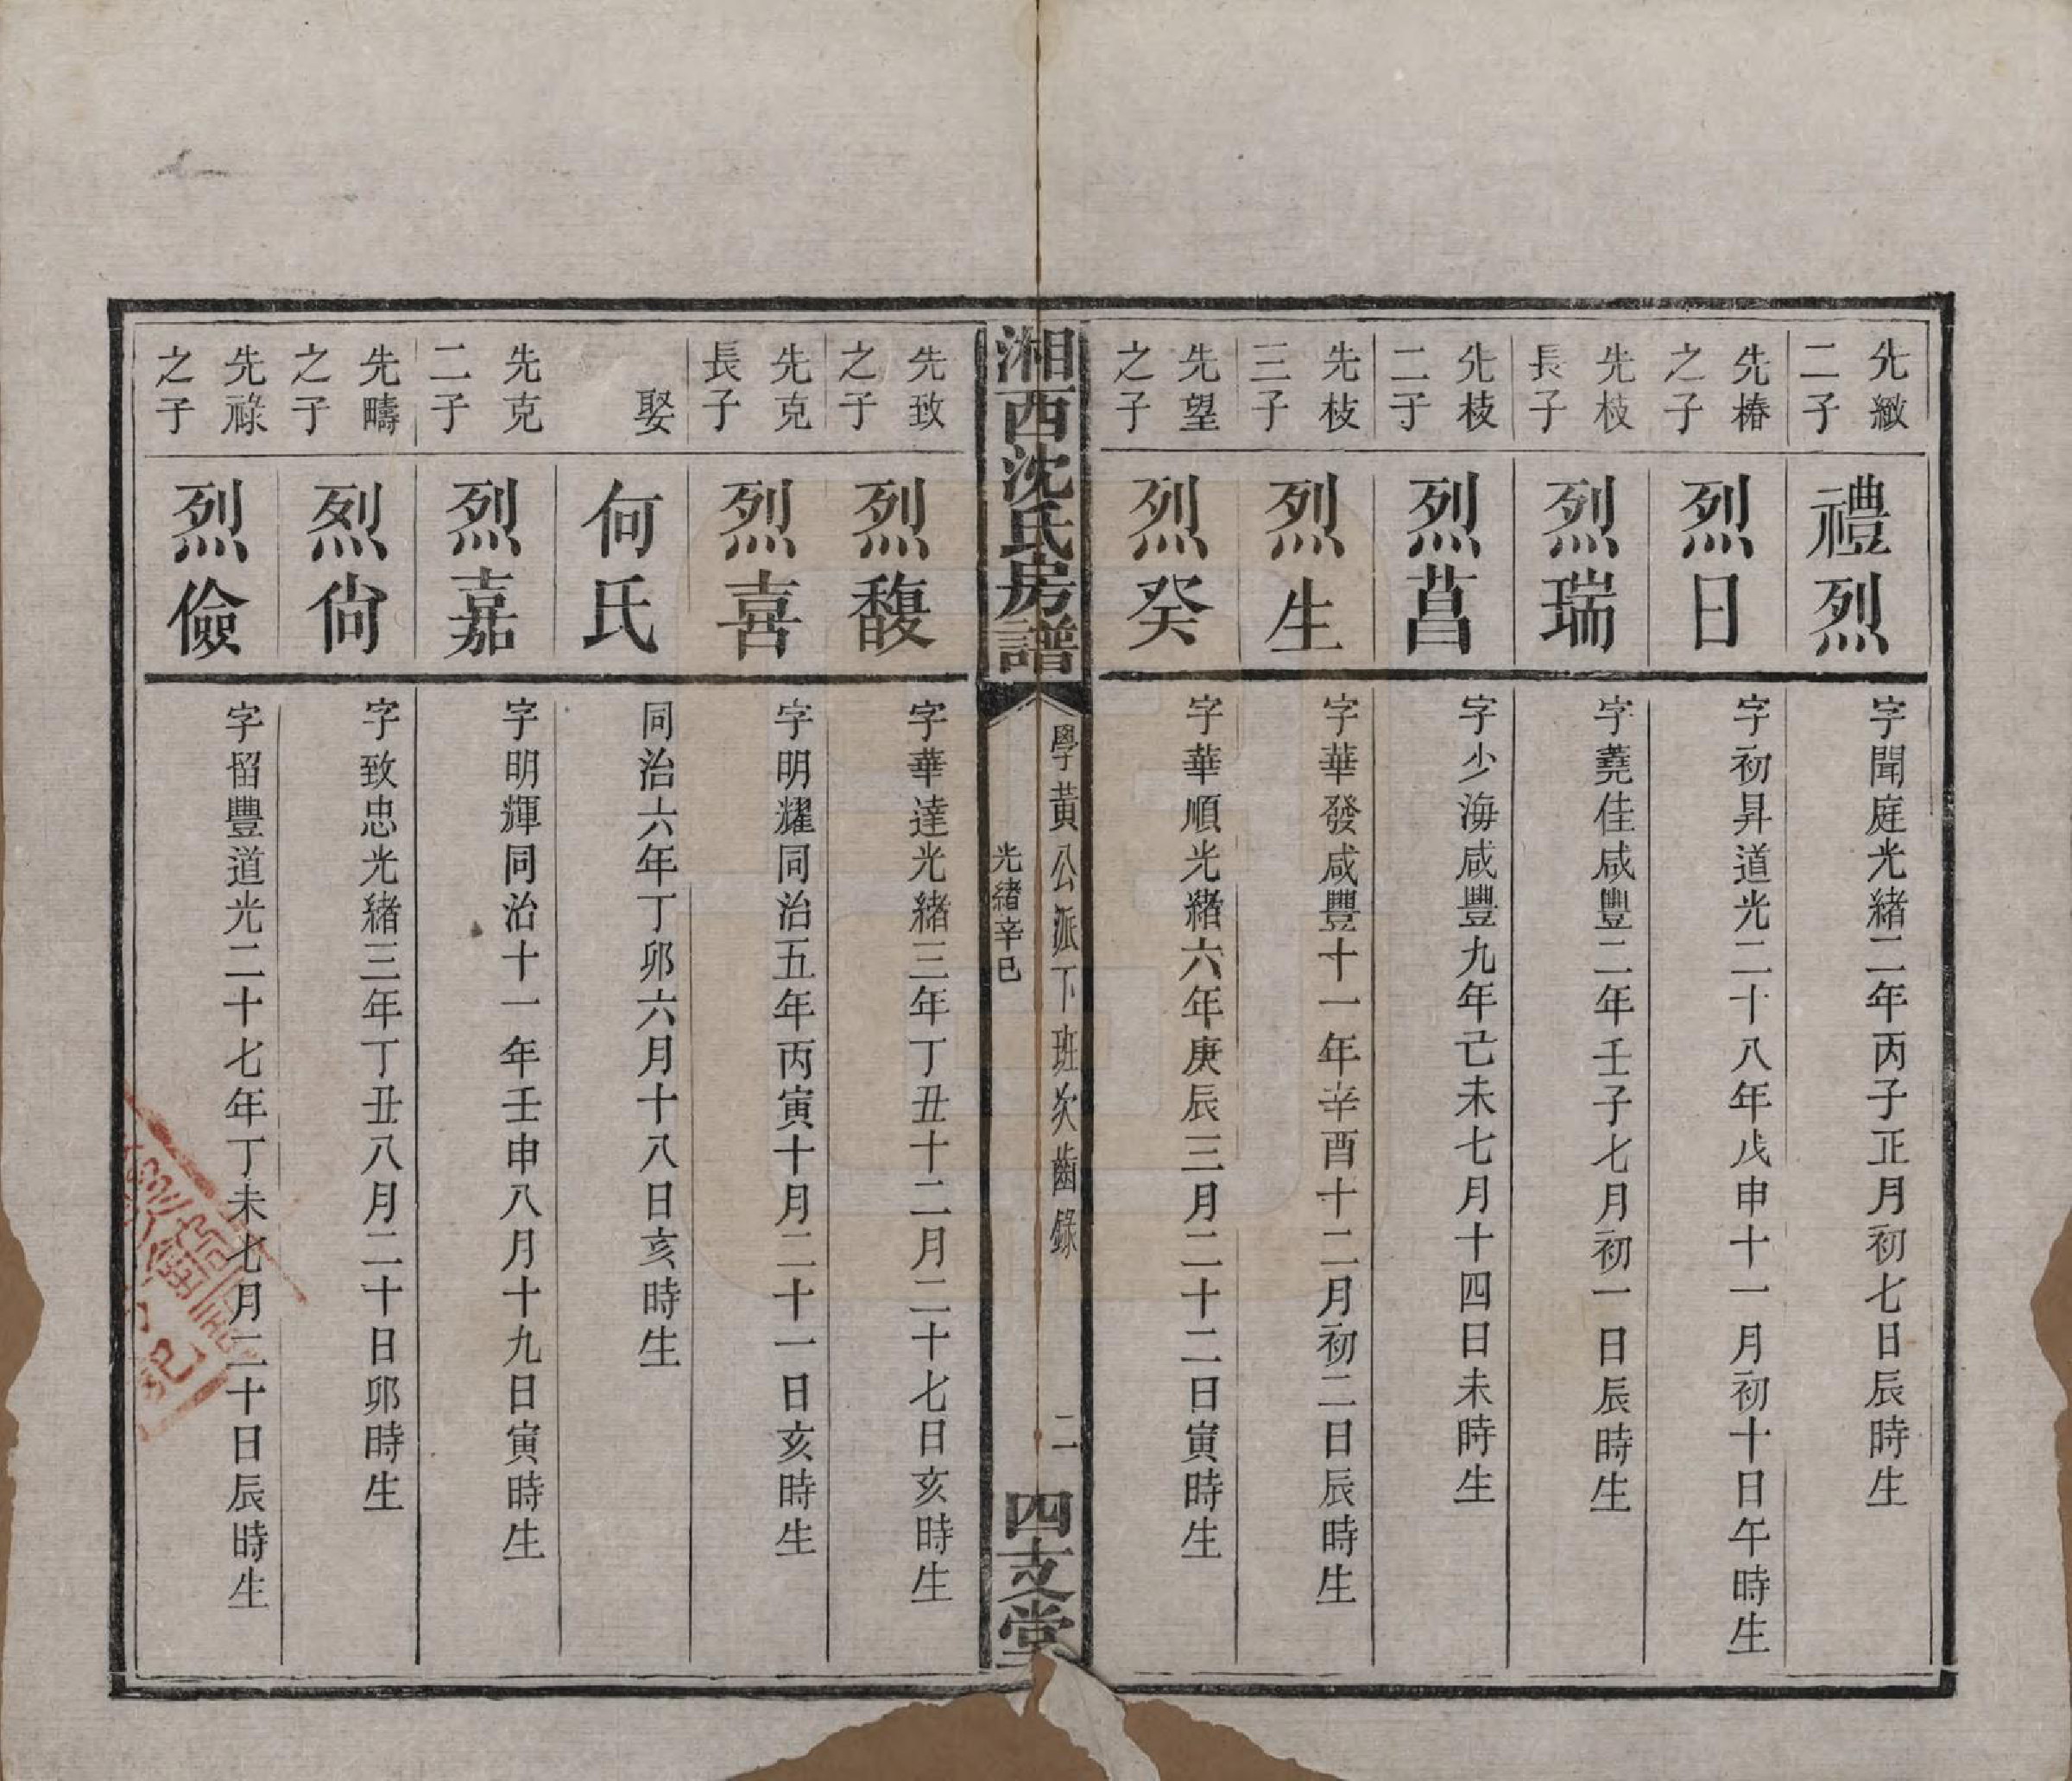 先緻
二子
禮烈
字聞庭光緒二年丙子正月初七日辰時生
先椿
之子
烈日
字初昇道光二十八年戊申十一月初十日午時生
先枝
長子
烈瑞
字蕘佳咸豐二年壬子七月初一日辰時生
先枝
二子
烈菖
字少海咸豐九年己未七月十四日未時生
先枝
三子
烈生
字華發咸豐十一年辛酉十二月初二日辰時生
先望
之子
烈癸
字華順光緒六年庚辰三月二十二日寅時生
湘西沈氏房譜
學黃公派下班次齒錄
二
光緒辛巳
四支堂
先致
之子
烈馥
字華達光緒三年丁丑十二月二十七日亥時生
先克
長子
烈喜
字明耀同治五年丙寅十月二十一日亥時生
娶
何氏
同治六年丁卯六月十八日亥時生
先克
二子
烈嘉
字明輝同治十一年壬申八月十九日寅時生
先疇
之子
烈尙
字致忠光緒三年丁丑八月二十日卯時生
先祿
之子
烈儉
字畱豐道光二十七年丁未七月二十日辰時生